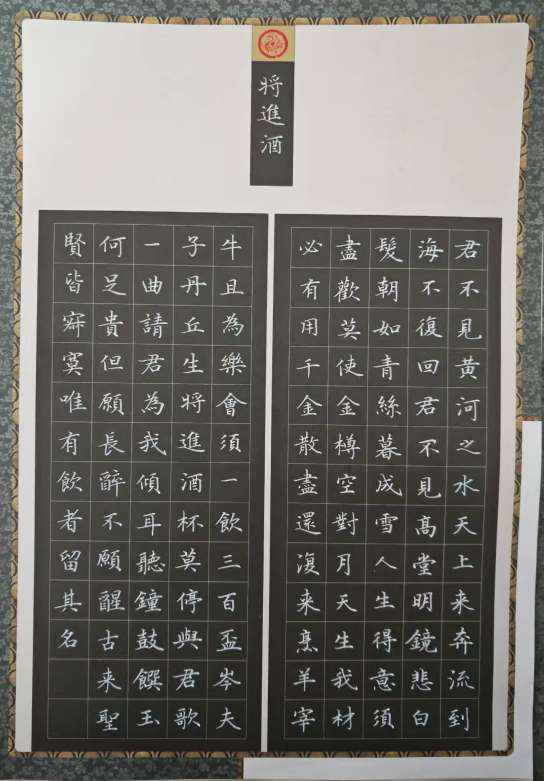 將進酒
君不見黃河之水天上来奔流到
海不復回君不見高堂明鏡悲白
髮朝如青絲暮成雪人生得意須
盡歡莫使金樽空對月天生我材
必有用千金散盡還復来烹羊宰
牛且為樂會須一飲三百盃岑夫
子丹丘生將進酒杯莫停與君歌
一曲請君為我傾耳聽鐘鼓饌玉
何足貴但願長醉不願醒古来聖
賢皆寂寞唯有飲者留其名